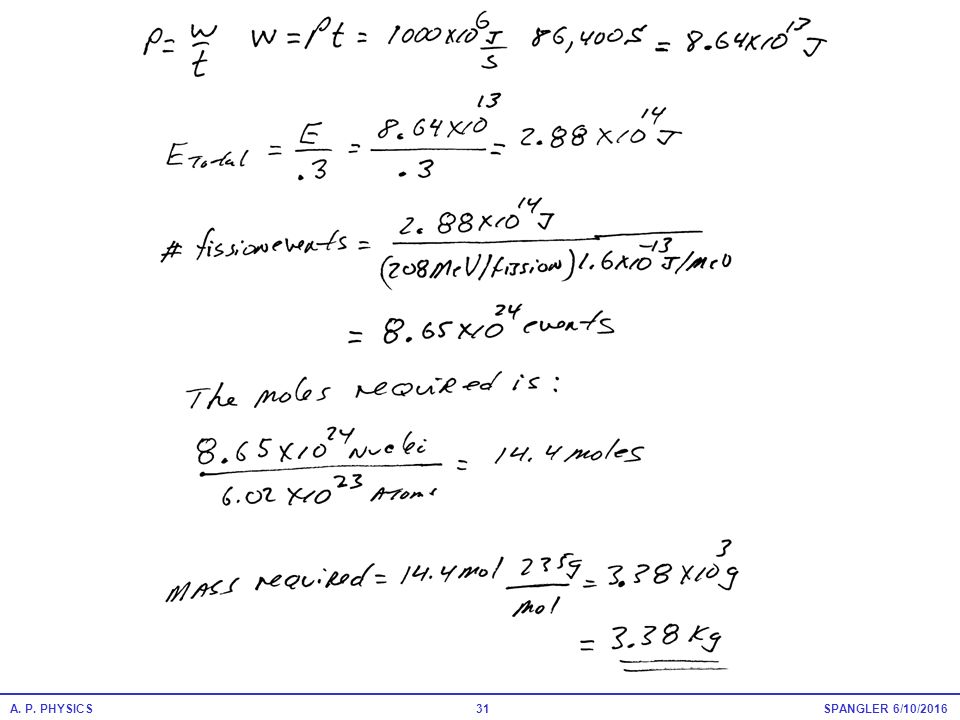 P = W/t W = Pt = 1000x10⁶ J/S 86,400S = 8.64x10¹³ J
E Total = E/.3 = 8.64x10¹³/.3 = 2.88x10¹⁴ J
# fission events = 2.88x10¹⁴ J/(208MeV/fission) 1.6x10⁻¹³ J/MeV
= 8.65x10²⁴ events
The moles required is:
8.65x10²⁴ Nuclei/6.02x10²³ Atoms = 14.4 moles
MASS required = 14.4 mol 235g/mol = 3.38x10³ g
= 3.38 Kg
A. P. PHYSICS 31 SPANGLER 6/10/2016